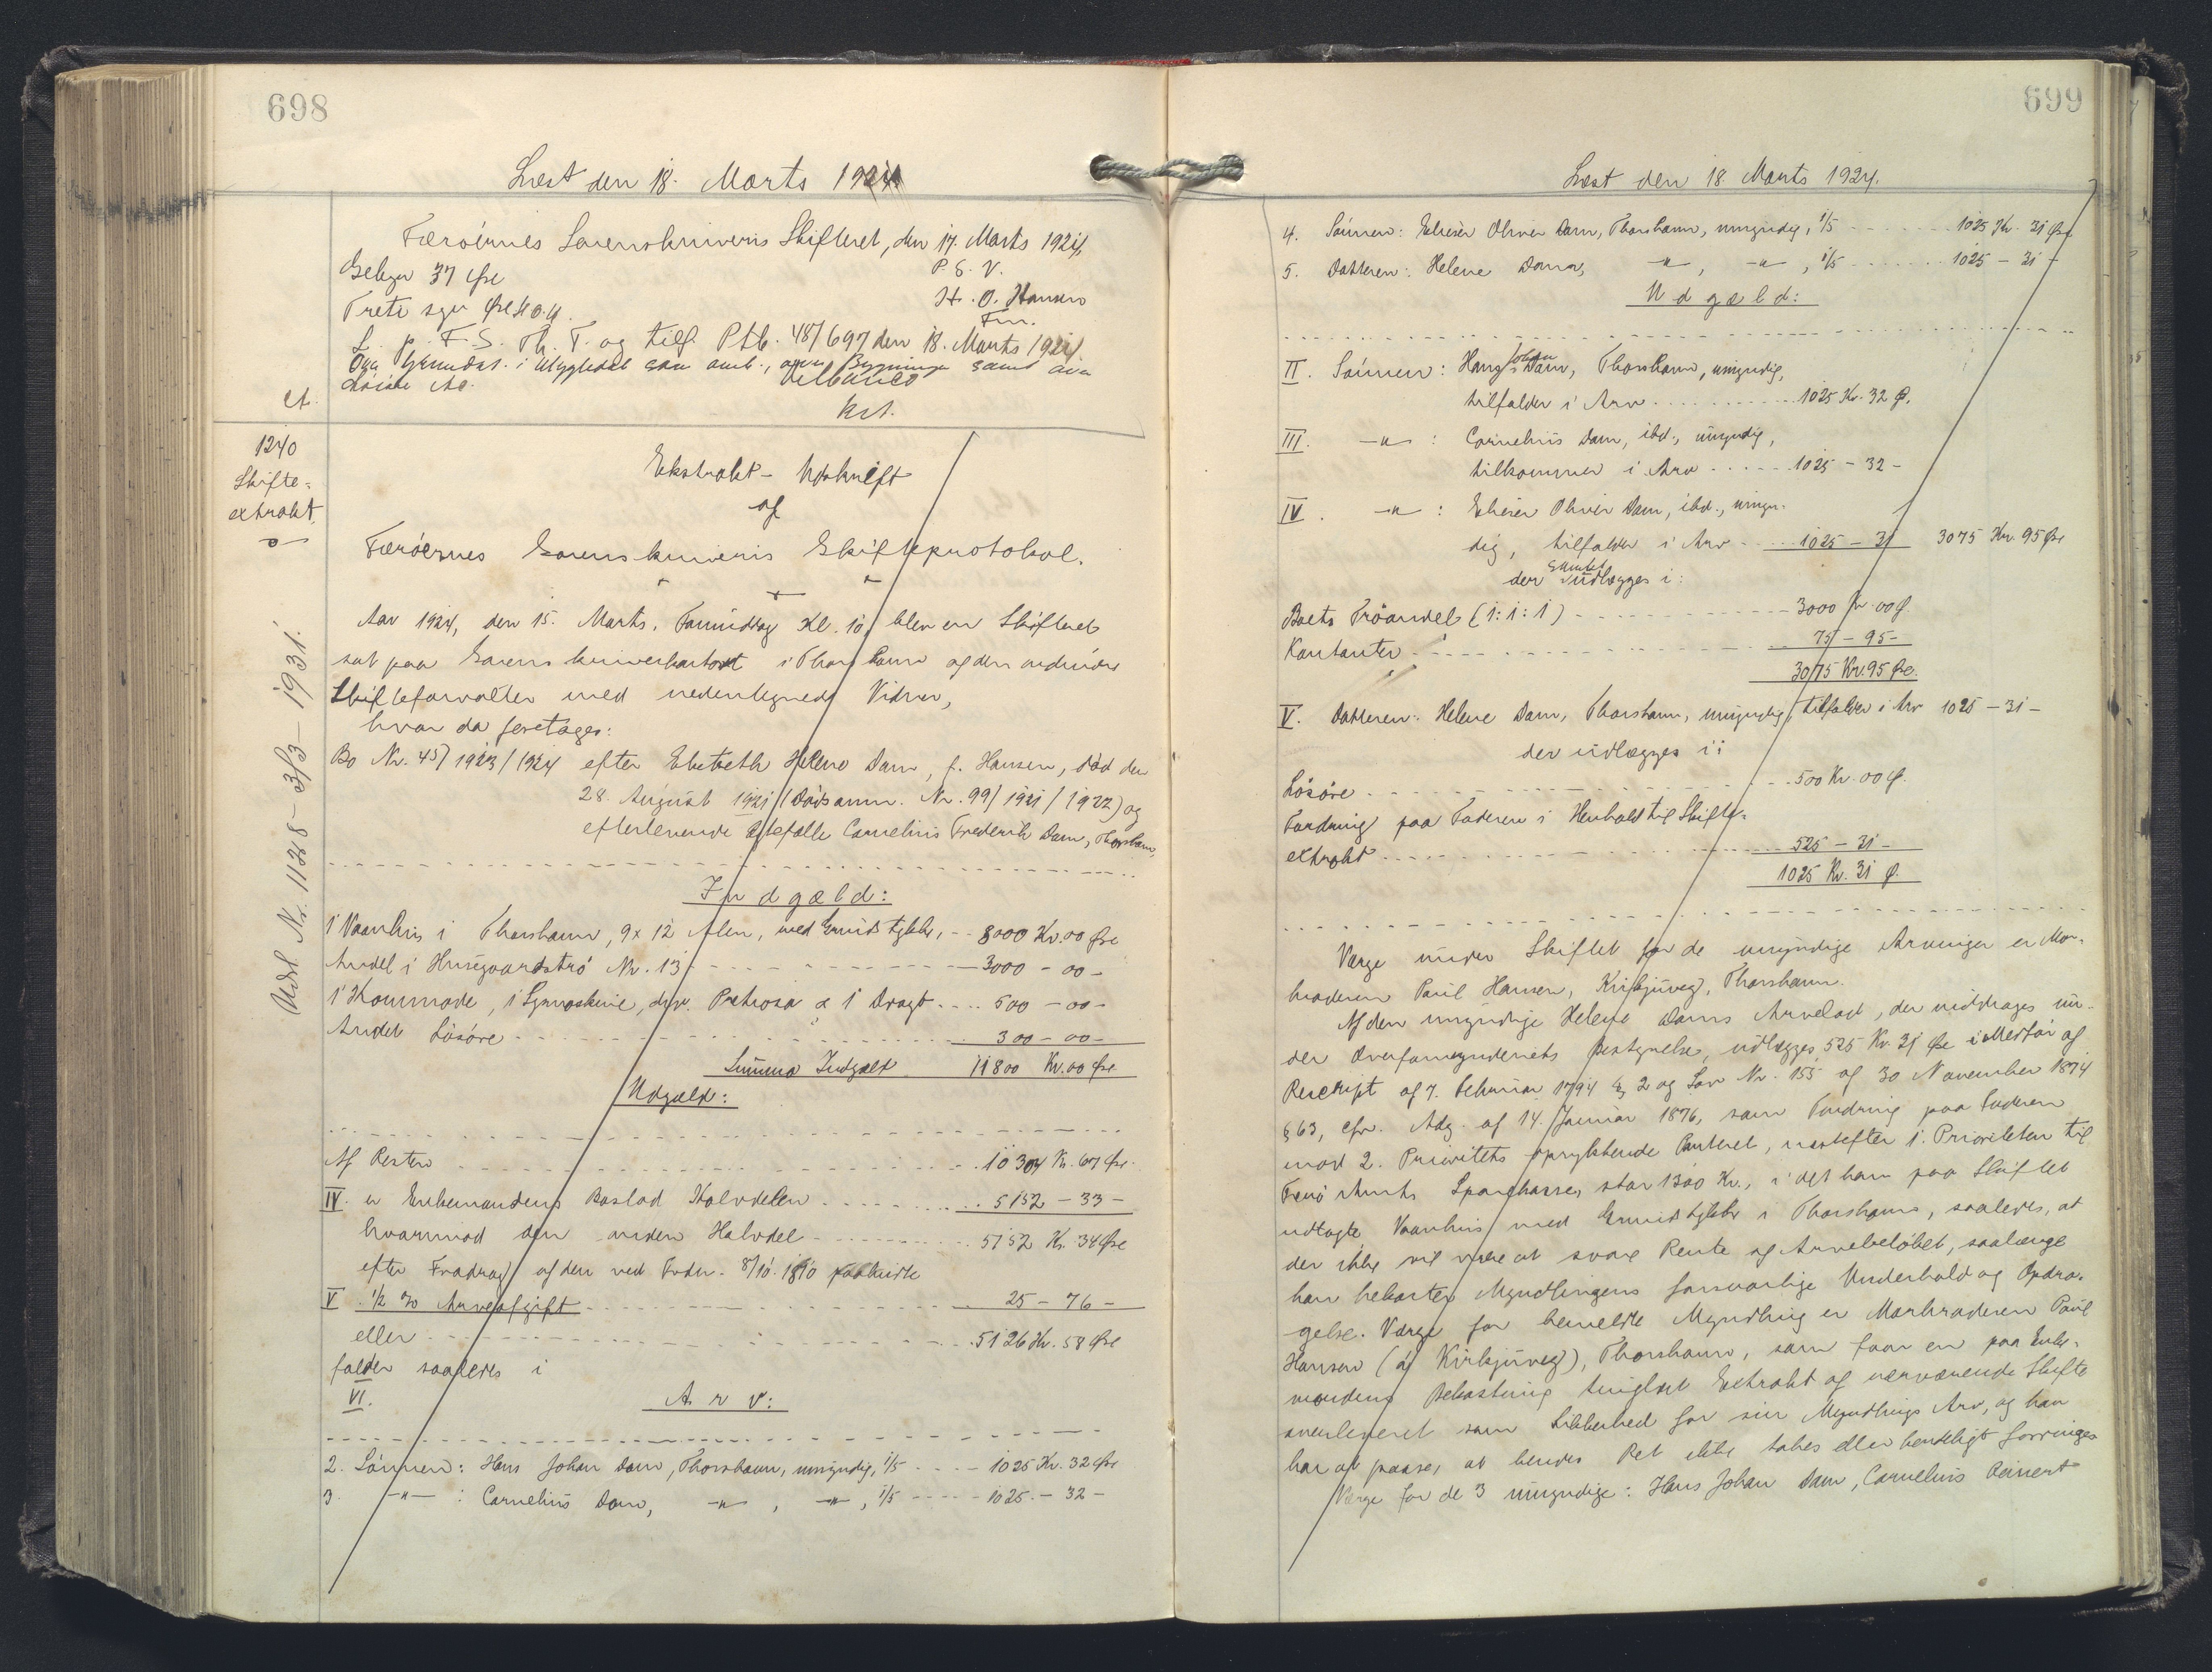 698
Læst den 18. Marts 1924
Færöernes Sorenskriveris Skifteret, den 17. Marts 1924.
Gebyr 37 Øre
P. S. V.
H. O. Hansen
Fm.
L. p. F. S. Th. T. og tilf. Ptb. 48/697 den 18. Marts 1924.
1240
Skifte=
extrakt.
Udsl Nr. 1128 - 3/3 - 1931.
Ekstrakt- Udskrift
af
Færöernes Sorenskriveris Skifteprotokol.
Aar 1924, den 15. Marts, Formiddag Kl. 10, blev en Skifteret
sat paa Sorenskriverkontoret i Thorshavn af den ordinære
Skifteforvalter med nedentegnede Vidner,
hvor da foretages:
Bo Nr. 45/1923/1924 efter Elisabeth Helene Dam, f. Hansen, död den
28. August 1921 (Dödsanm. Nr. 99/1921/1922) og
efterlevende Ægtefælle Cornelius Frederik Dam, Thorshavn,
Indgæld:
1 Vaanhus i Thorshavn, 9x12 Alen, med Grundstykke, - 8000 Kr. 00 Øre
Andel i Husegaardströ Nr. 13 - 3000 - 00 -
1 Kommode, 1 Symaskine, div. Pretiosa & 1 Dragt .... 500 - 00 -
Andet Lösöre - 300 - 00 -
Summa Indgæld 11800 Kr. 00 Øre
Udgæld:
Af Resten 10304 Kr. 67 Øre.
IV. er Enkemandens Boslod Halvdelen 5152 - 33 -
hvorimod den anden Halvdel 5152 Kr. 34 Øre
efter Fradrag af den ved Frdn. 8/10. 1810 paabudte
V. 1/2 % Arveafgift 25 - 76 -
eller 5126 Kr. 58 Øre
falder saaledes i
VI. Arv:
2. Sönnen: Hans Johan Dam, Thorshavn, umyndig, 1/5 .... 1025 Kr. 32 Øre
3. -"- : Cornelius Dam, -"- , -"- , 1/5 .... 1025 - 32 -
699
Læst den 18. Marts 1924.
4. Sönnen: Elieser Oliver Dam, Thorshavn, umyndig, 1/5 .... 1025 Kr. 31 Øre
5. Datteren: Helene Dam, -"- , -"- , 1/5 .... 1025 - 31 -
Udgæld:
II. Sönnen: Hans Johan Dam, Thorshavn, umyndig,
tilfalder i Arv .... 1025 Kr. 32 Ø.
III. -"- : Cornelius Dam, ibd., umyndig,
tilkommer i Arv .... 1025 - 32 -
IV. -"- : Elieser Oliver Dam, ibd., umyn-
dig, tilfalder i Arv .... 1025 - 31 3075 Kr. 95 Øre
der samlet udlægges i:
Boets Tröandel (1:1:1) 3000 Kr. 00 Ø.
Kontanter 75 - 95 -
3075 Kr. 95 Øre.
V. Datteren: Helene Dam, Thorshavn, umyndig, tilfalder i Arv 1025 - 31 -
der udlægges i:
Lösöre 500 Kr. 00 Ø.
Fordring paa Faderen i Henhold til Skifte=
extrakt 525 - 31 -
1025 Kr. 31 Ø.
Værge under Skiftet for de umyndige Arvinger er Mor-
broderen Poul Hansen, Kirkjuveg, Thorshavn.
Af den umyndige Helene Dams Arvelod, der uddrages un-
der Overformynderiets Bestyrelse, udlægges 525 Kr. 31 Øre i Medfør af
Rescript af 7. Februar 1794 § 2 og Lov Nr. 155 af 30 November 1874
§ 63, cfr. Adg. af 14. Januar 1876, som Fordring paa Faderen
mod 2. Prioritets oprykkende Panteret, næstefter 1. Prioriteten til
Færö Amts Sparekasse, stor 1300 Kr., i det ham paa Skiftet
udlagte Vaanhus med Grundstykke i Thorshavn, saaledes, at
der ikke vil være at svare Rente af Arvebelöbet, saalænge
han bekoster Myndlingens forsvarlige Underhold og Opdra-
gelse. Værge for bemeldte Myndling er Morbroderen Poul
Hansen (af Kirkjuveg), Thorshavn, som faar en paa Enke-
mandens Bekostning tinglæst Extrakt af nærværende Skifte
overleveret som Sikkerhed for sin Myndlings Arv, og han
har at paase, at hendes Ret ikke tabes eller bevisligt forringes
Værge for de 3 umyndige: Hans Johan Dam, Cornelius Reinert